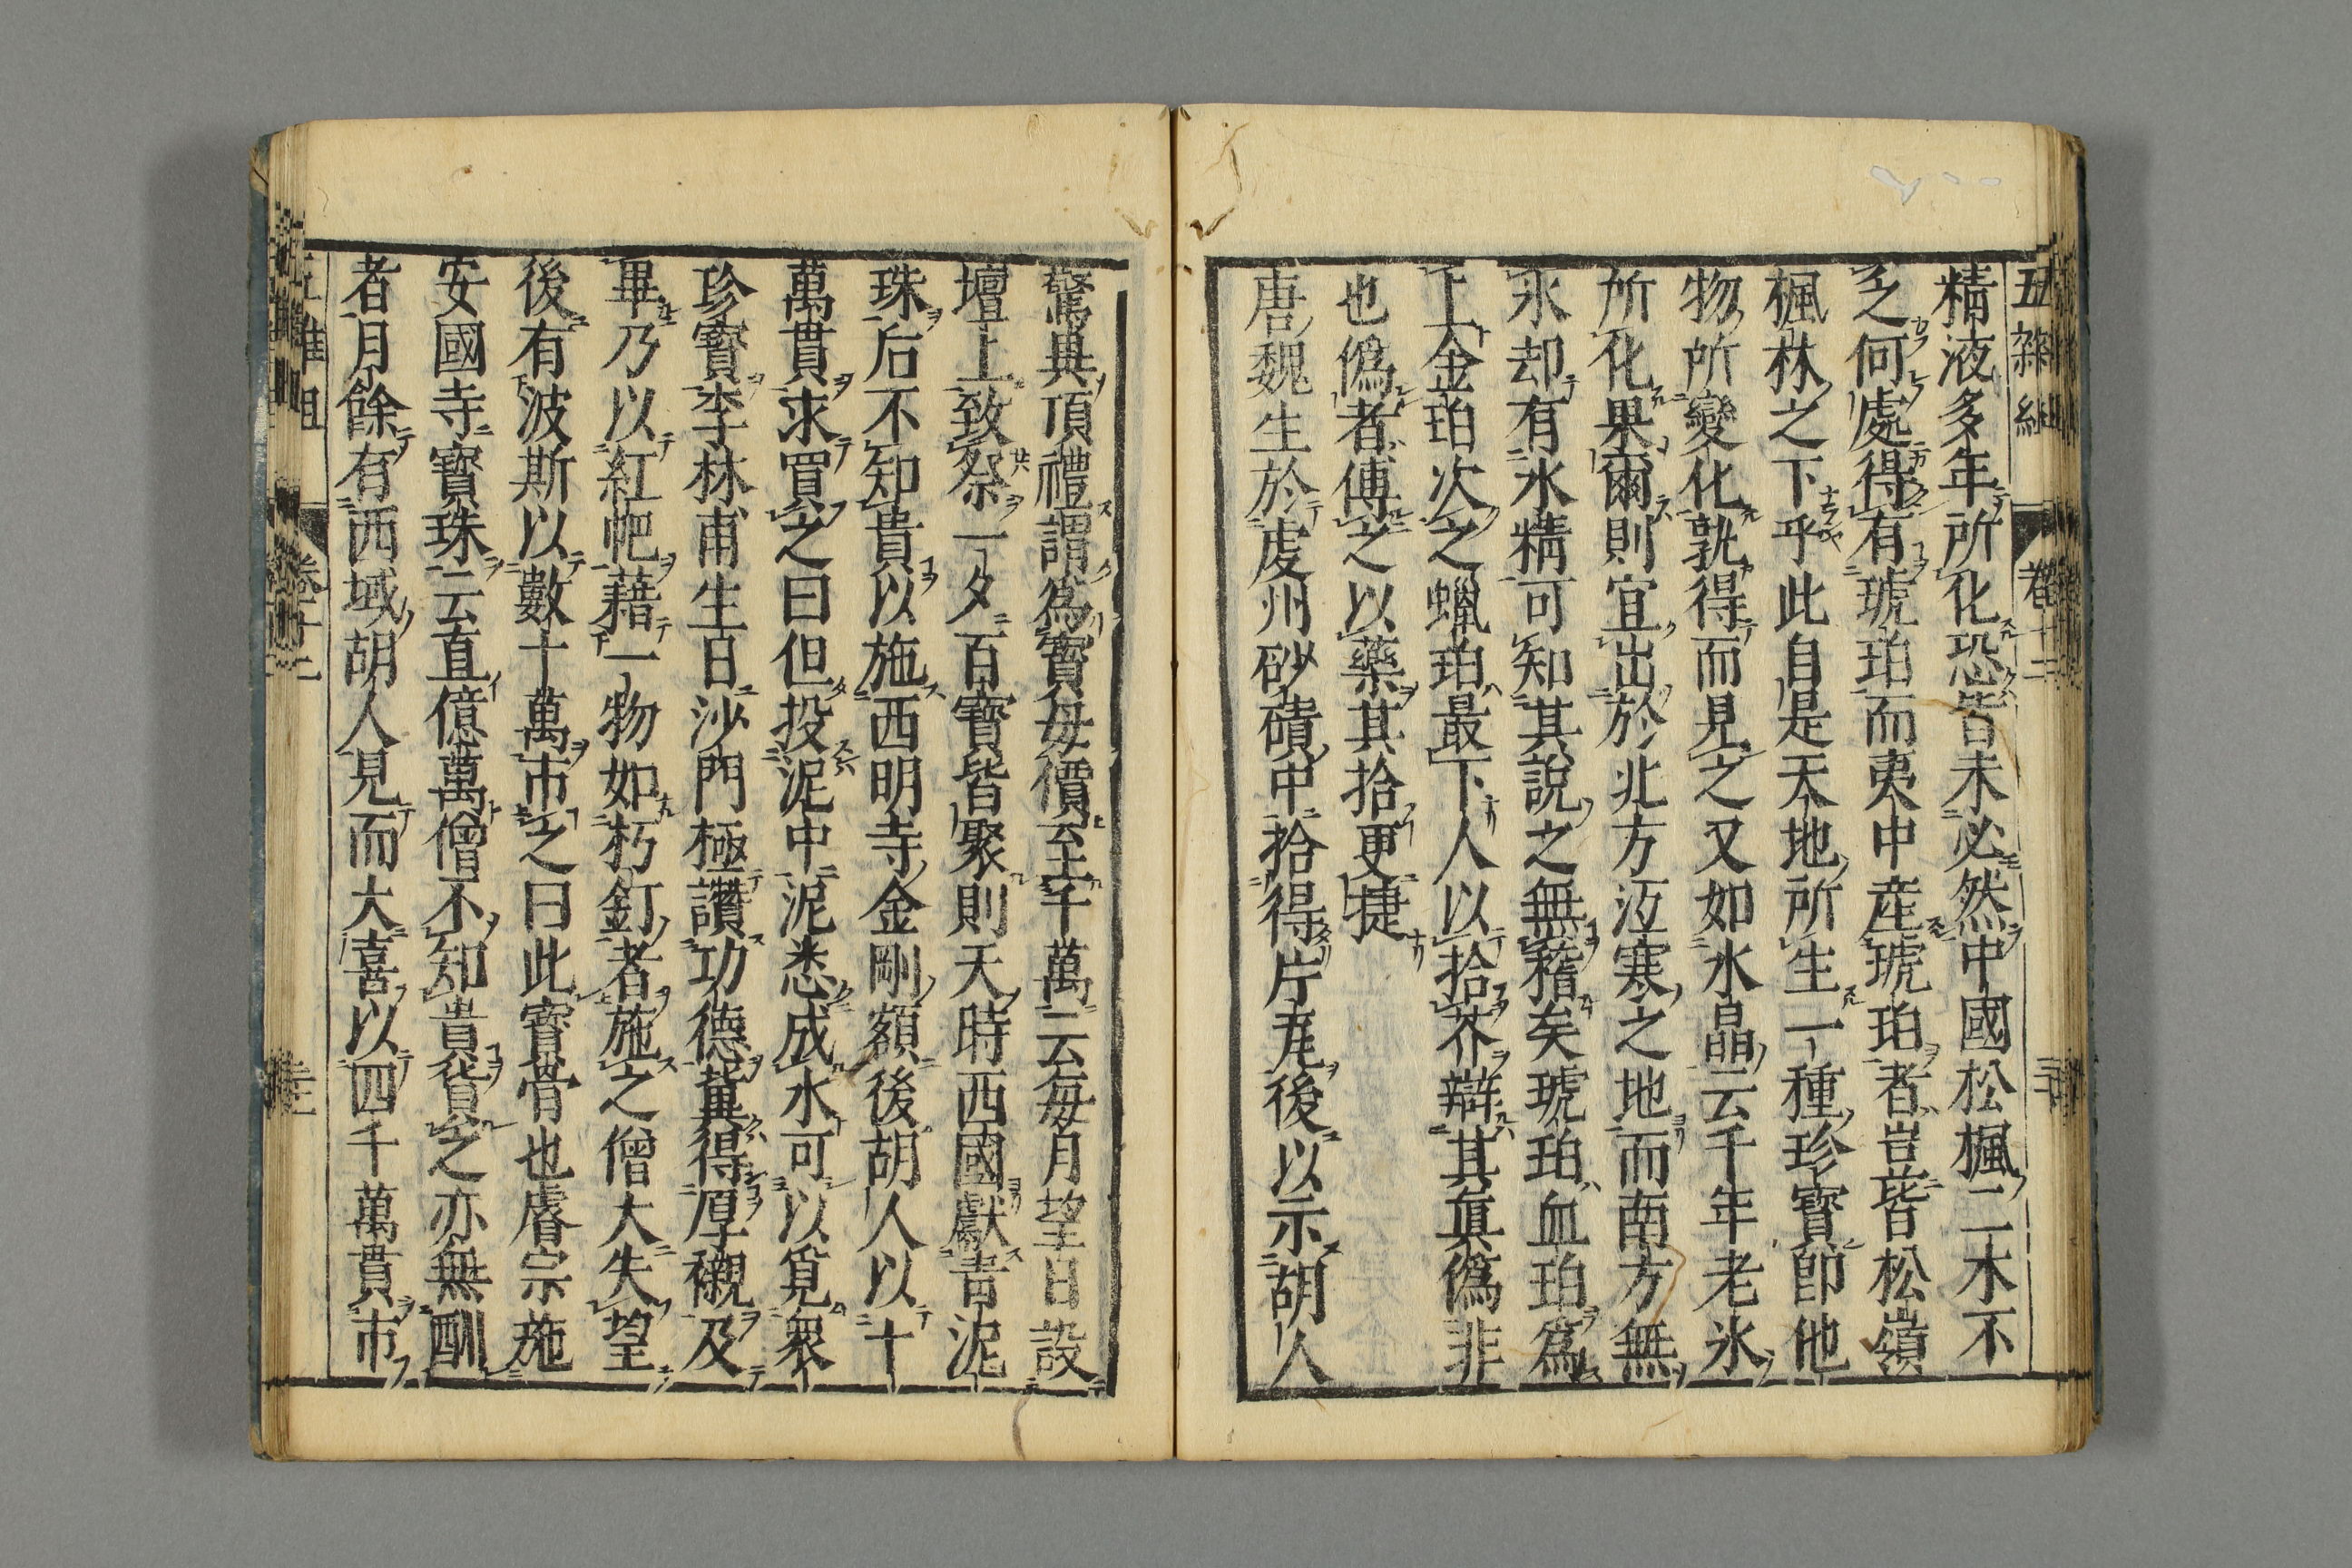 五雜組 卷十二
精液多年所化恐皆未必然中國松楓二木不
乏何處得有琥珀而夷中產琥珀者豈皆松嶺
楓林之下乎此自是天地所生一種珍寶卽他
物所變化孰得而見之又如水晶云千年老氷
所化果爾則宜出於北方沍寒之地而南方無
氷却有水精可知其說之無稽矣琥珀血珀爲
上金珀次之蠟珀最下人以拾芥辯其眞僞非
也僞者傅之以藥其拾更捷
唐魏生於虔州砂磧中拾得片瓦後以示胡人
驚異頂禮謂爲寶母價至千萬云每月望日設
壇上致祭一夕百寶皆聚則天時西國獻青泥
珠后不知貴以施西明寺金剛額後胡人以十
萬貫求買之曰但投泥中泥悉成水可以覓衆
珍寶李林甫生日沙門極讚功德冀得厚襯及
畢乃以紅帊藉一物如朽釘者施之僧大失望
後有波斯以數十萬市之曰此寶骨也睿宗施
安國寺寶珠云直億萬僧不知貴貨之亦無酬
者月餘有西域胡人見而大喜以四千萬貫市